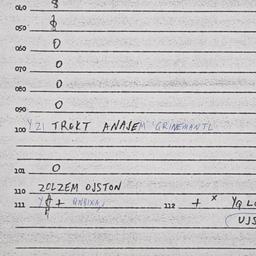 040 8
050
060 0
070 0
080 0
090 0
100 YZI TRUKT ANAJEM GRINEMANTL
101 0
110 ZOLZEM OJSTON
111 + 112 + x YQ
UJS